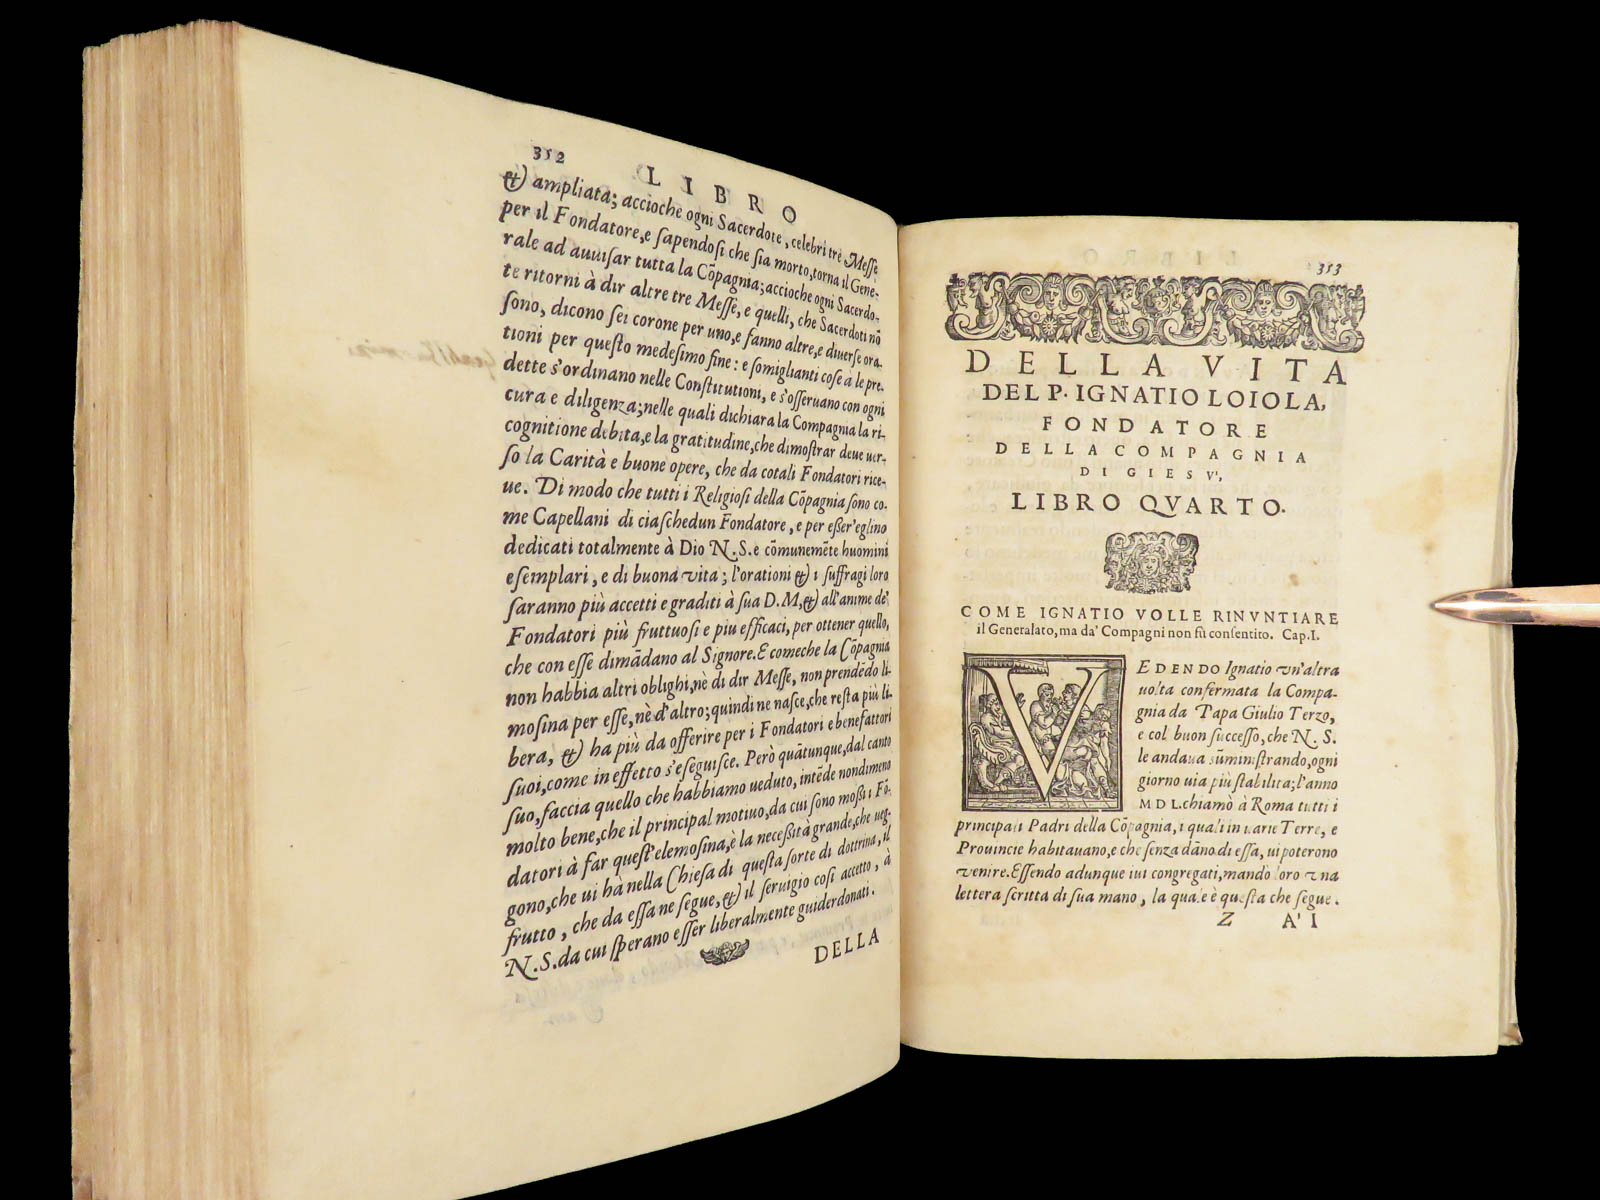 352
LIBRO
& ampliata; accioche ogni Sacerdote, celebri trè Messe
per il Fondatore, e sapendosi che sia morto, torna il Gene-
rale ad auuisar tutta la Cõpagnia; accioche ogni Sacerdo-
te ritorni à dir altre tre Messe, e quelli, che Sacerdoti nõ
sono, dicono sei corone per uno, e fanno altre, e diuerse ora-
tioni per questo medesimo fine: e somiglianti cose a le pre-
dette s'ordinano nelle Constitutioni, e s'osseruano con ogni
cura e diligenza; nelle quali dichiara la Compagnia la ri-
cognitione debita, e la gratitudine, che dimostrar deue uer-
so la Carità e buone opere, che da cotali Fondatori rice-
ue. Di modo che tutti i Religiosi della Cõpagnia sono co-
me Capellani di ciaschedun Fondatore, e per esser'eglino
dedicati totalmente à Dio N. S. e cõmunemẽte huomini
esemplari, e di buona vita; l'orationi & i suffragi loro
saranno più accetti e graditi à sua D. M, & all'anime de'
Fondatori più fruttuosi e piu efficaci, per ottener quello,
che con esse dimãdano al Signore. E comeche la Cõpagnia
non habbia altri oblighi, nè di dir Messe, non prendẽdo li-
mosina per esse, nè d'altro; quindi ne nasce, che resta più li-
bera, & ha più da offerire per i Fondatori e benefattori
suoi, come in effetto s'eseguisce. Però quãtunque, dal canto
suo, faccia quello che habbiamo ueduto, intẽde nondimeno
molto bene, che il principal motiuo, da cui sono mossi i Fõ-
datori à far quest'elemosina, è la necessità grande, che ueg-
gono, che ui hà nella Chiesa di questa sorte di dottrina, il
frutto, che da essa ne segue, & il seruigio cosi accetto, à
N. S. da cui sperano esser liberalmente guiderdonati.
DELLA
353
DELLA VITA
DEL P. IGNATIO LOIOLA,
FONDATORE
DELLA COMPAGNIA
DI GIESV',
LIBRO QVARTO.
COME IGNATIO VOLLE RINVNTIARE
il Generalato, ma da' Compagni non fù consentito. Cap. I.
VEDENDO Ignatio vn'altra
uolta confermata la Compa-
gnia da Papa Giulio Terzo,
e col buon successo, che N. S.
le andaua sũministrando, ogni
giorno uia più stabilita; l'anno
MDL. chiamò à Roma tutti i
principali Padri della Cõpagnia, i quali in uarie Terre, e
Prouincie habitauano, e che senza dãno di essa, ui poterono
venire. Essendo adunque iui congregati, mandò loro vna
lettera scritta di sua mano, la quale è questa che segue.
Z A' I